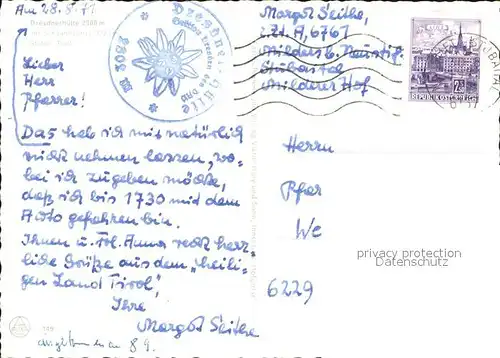 Am 28.8.71
Dresdnerhütte 2308 m
Lieber
Herr
Pfarrer!
Das hab ich mir natürlich
nicht nehmen lassen, wo-
bei ich zugeben möchte,
daß ich bis 1730 mit dem
Auto gefahren bin.
Ihnen u. Frl. Anna recht herz-
liche Grüße aus dem "heili-
gen Land Tirol",
Ihre
Margot Seithe
8.9.
Dresdner Hütte
2302 M
Margot Seithe,
A, 6167
Milders b. Neustift
Stubaital
Milderer Hof
REPUBLIK ÖSTERREICH
Herrn
Pfar
We
6229
privacy protection
Datenschutz